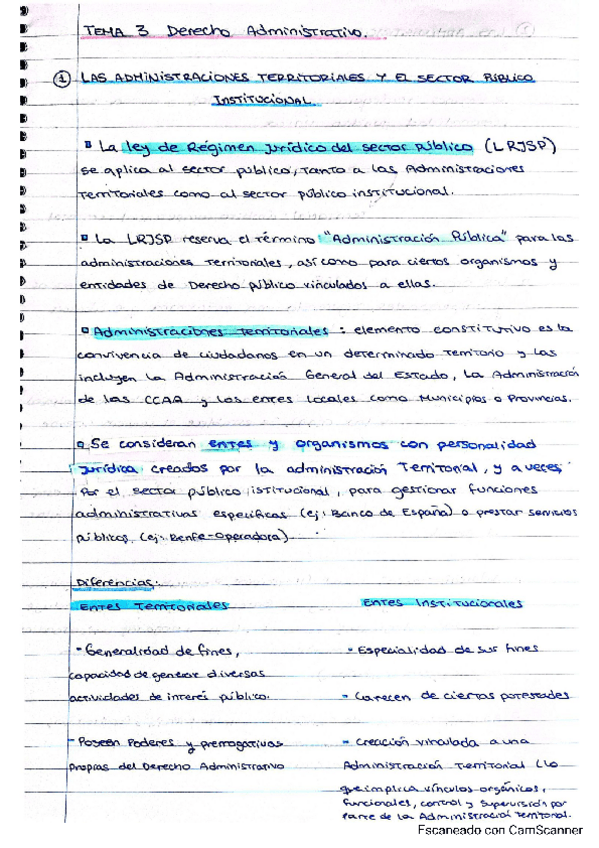 TEMA 3 Derecho Administrativo.
① LAS ADMINISTRACIONES TERRITORIALES Y EL SECTOR PÚBLICO
INSTITUCIONAL
La ley de Régimen Jurídico del sector público (LRJSP)
se aplica al sector público, tanto a las Administraciones
Territoriales como al sector público institucional.
La LRJSP reserva el término "Administración Pública" para las
administraciones Territoriales, así como para ciertos organismos y
entidades de Derecho público vinculados a ellas.
Administraciones Territoriales : elemento constitutivo es la
convivencia de ciudadanos en un determinado territorio y las
incluyen la Administración General del Estado, la Administración
de las CCAA y los entes locales como Municipios o Provincias.
Se consideran entes y organismos con personalidad
jurídica creados por la administración Territorial, y a veces,
por el sector público istitucional, para gestionar funciones
administrativas específicas (ej: Banco de España) o prestar servicios
públicos (ej: Renfe-Operadora)
Diferencias:
Entes Territoriales
- Generalidad de fines,
capacidad de generar diversas
actividades de interés público.
- Poseen Poderes y prerrogativas
propias del Derecho Administrativo
Entes Institucionales
- Especialidad de sus fines
- Carecen de ciertas potestades
- Creación vinculada a una
Administración Territorial (lo
que implica vínculos orgánicos,
funcionales, control y supervisión por
parte de la Administración Territorial.
Escaneado con CamScanner